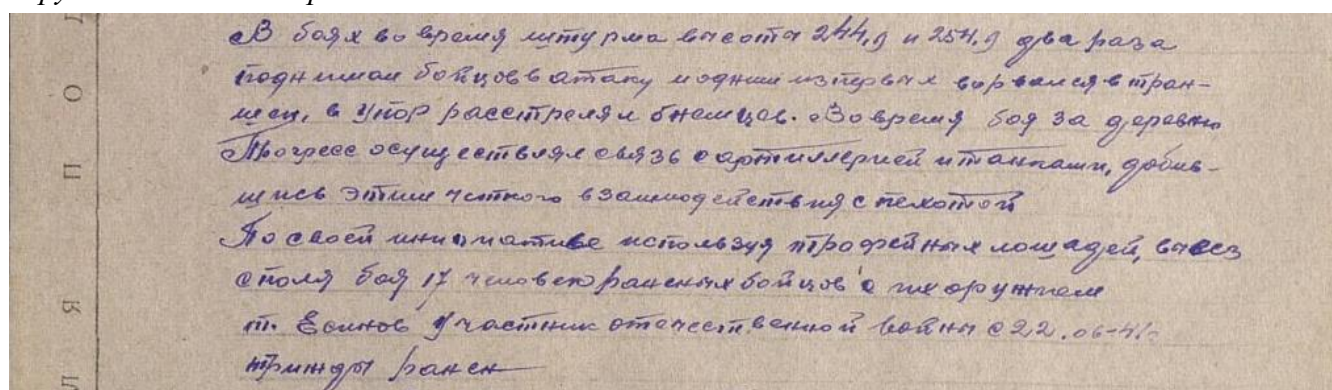 В боях во время штурма высота 244,9 и 254,9 два раза
поднимал бойцов в атаку и одним из первых ворвался в тран-
шеи, в упор расстрелял 6 немцев. Во время боя за деревню
Прогресс осуществлял связь с артиллерией и танками, добив-
шись этим четкого взаимодействия с пехотой
По своей инициативе используя трофейных лошадей, вывез
с поля боя 17 человек раненых бойцов с их оружием
т. Есинов участник отечественной войны с 22.06-41г
трижды ранен
П О
Л Я